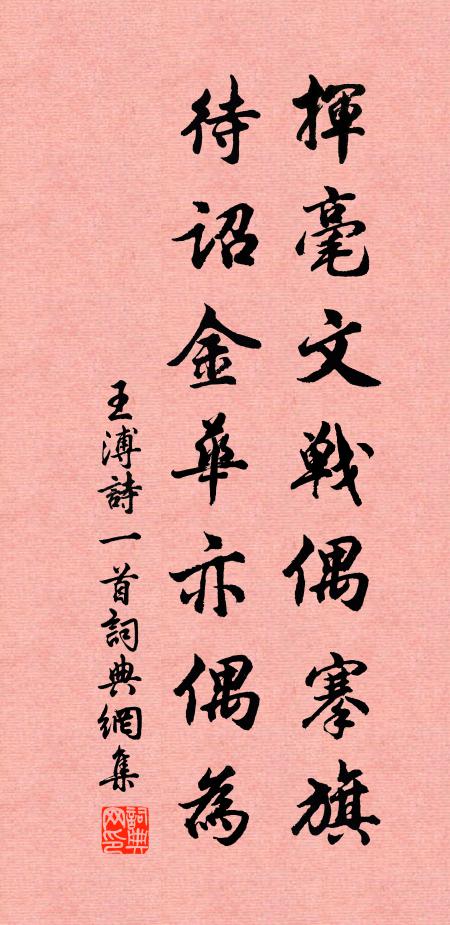 揮毫文戰偶搴旗
待詔金華亦偶為
王溥詩一首詞典網集
詞典网印